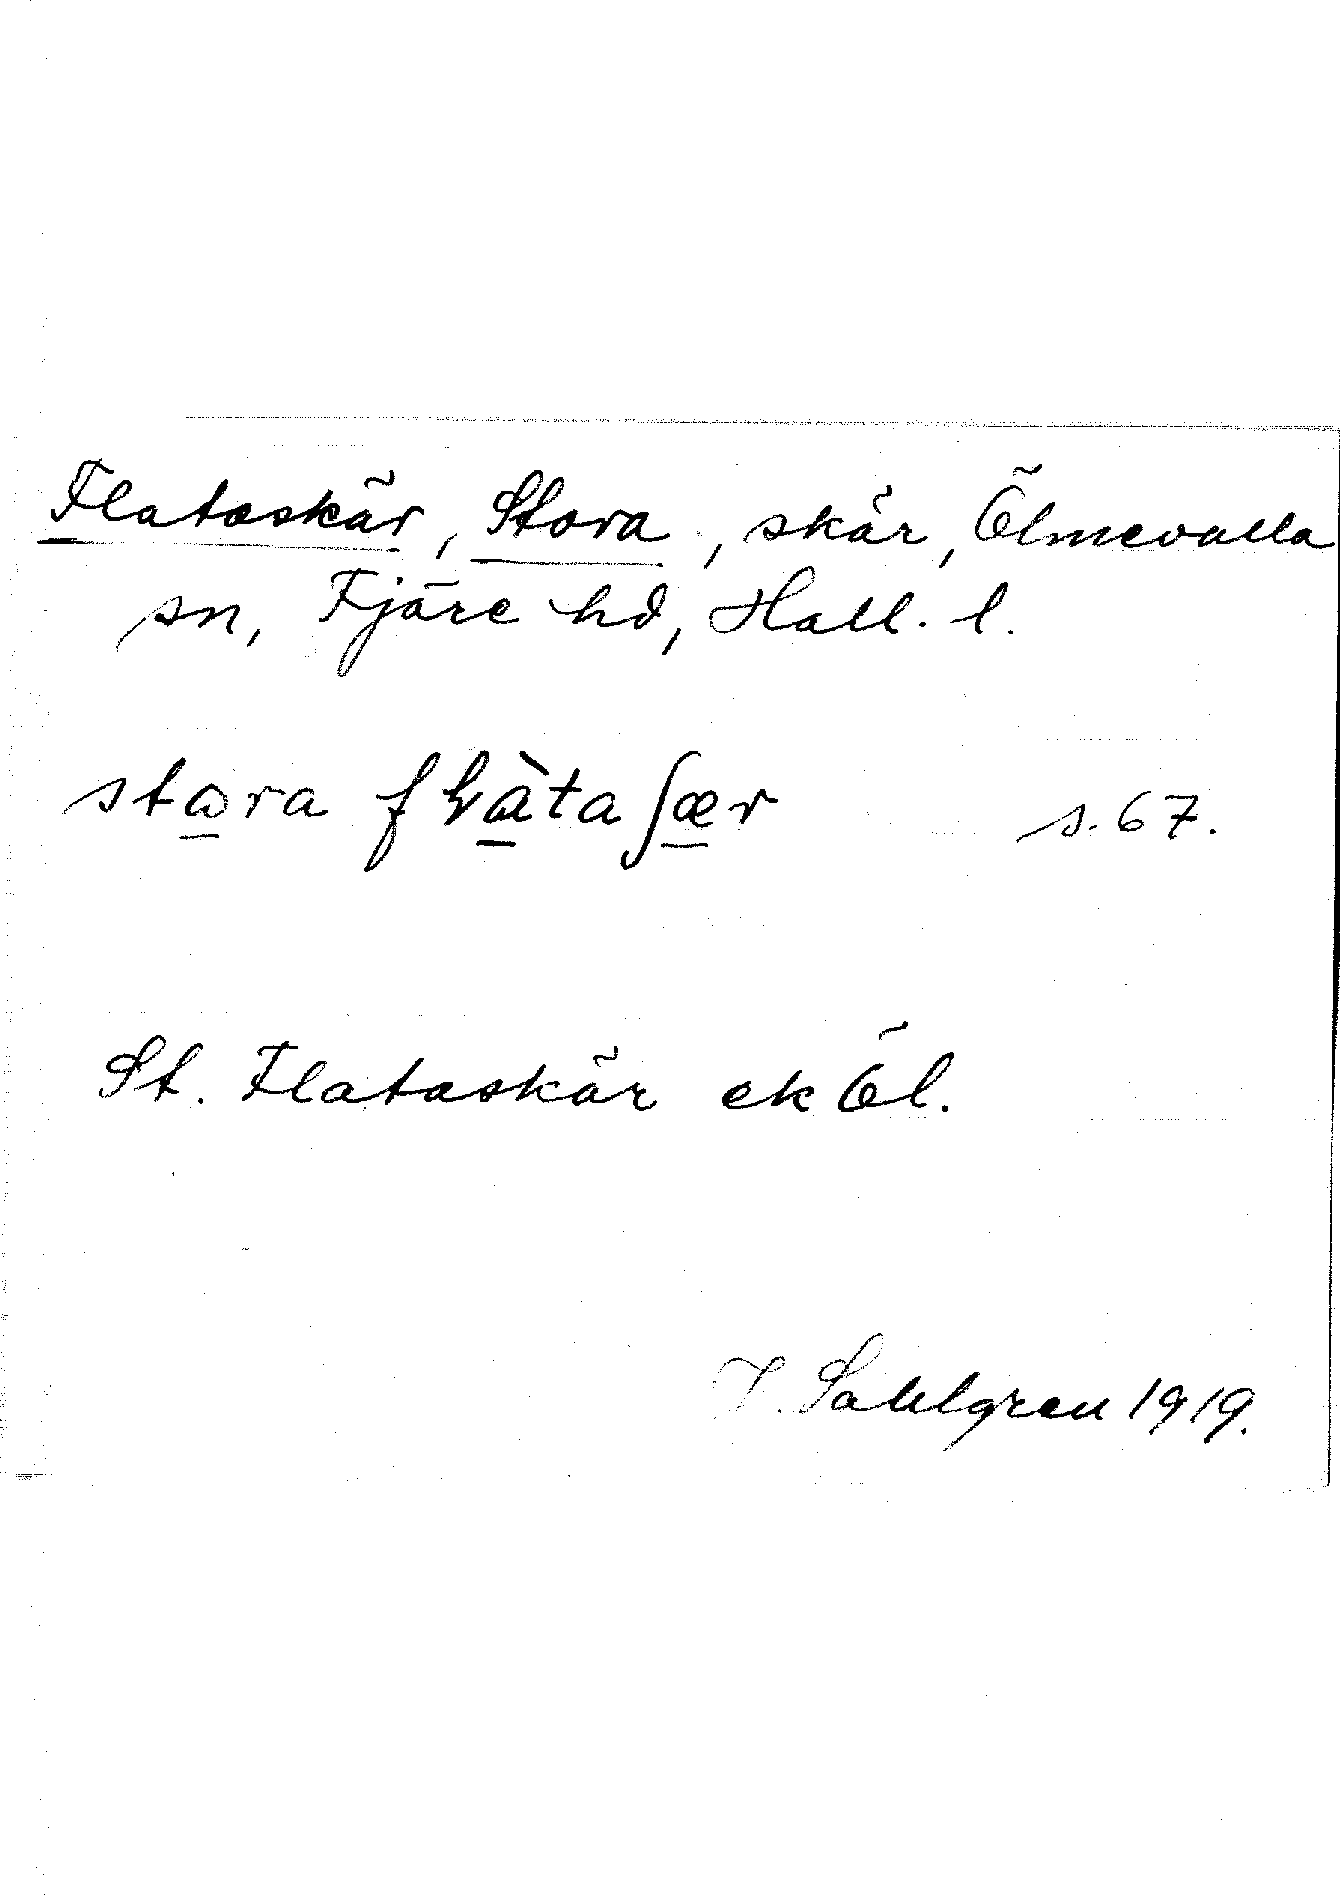 Flataskär, Stora, skär, Ölmevalla
sn, Fjäre hd, Hall. l.
stora flàtaʃær s. 67.
St. Flataskär ek Öl.
J. Sahlgren 1919.